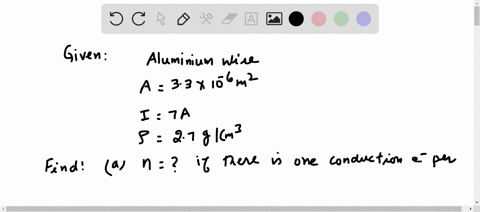 Given: Aluminium wire
A = 3.3 x 10⁻⁶ m²
I = 7A
ρ = 2.7 g/cm³
Find: (a) n = ? if there is one conduction e⁻ per